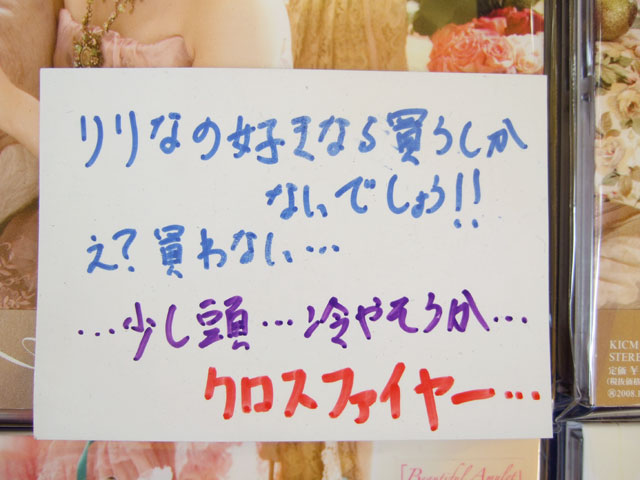 りりなの好きなら買うしか
ないでしょう!!
え?買わない…
…少し頭…冷やそうか…
クロスファイヤー…
KICM
STEREO
定価 ¥
(税抜価格
2008.
[Beautiful Amulet]